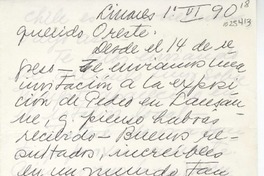 Linares 1º VI 90
querido Oreste:
Desde el 14 de re
greso — te enviamos una
invitación a la exposi
ción de Pedro en Lausan
ne, q. pienso habras
recibido — Buenos re
sultados, increíbles
en un mundo tan